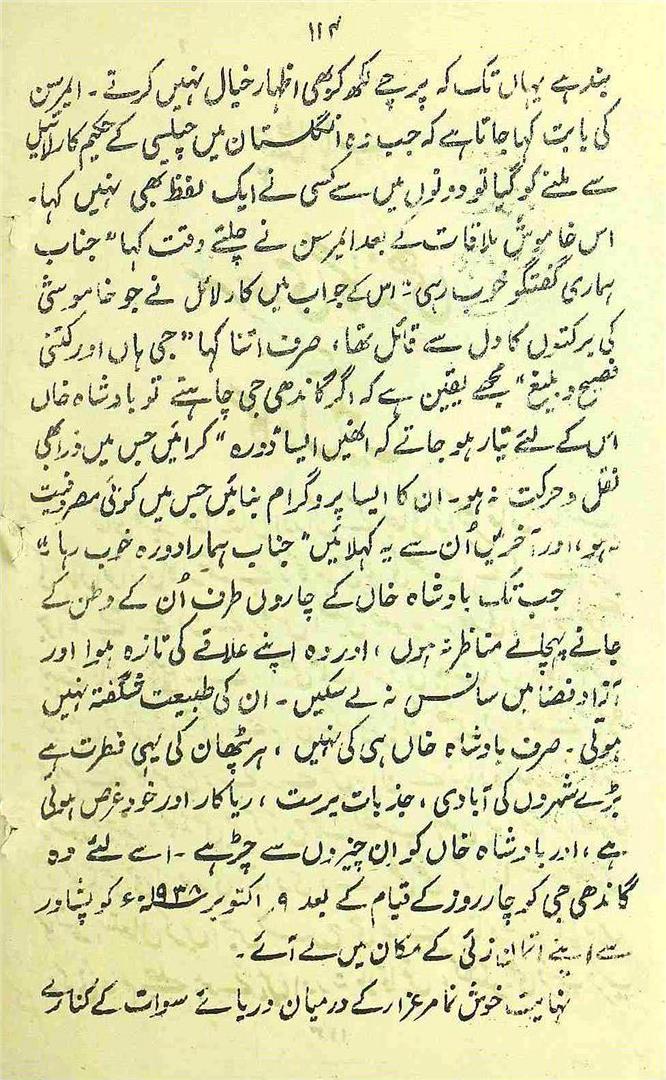 ۱۱۴
بند ہے یہاں تک کہ پرچے لکھ کر بھی اظہار خیال نہیں کرتے۔ ایمرسن
کی بابت کہا جاتا ہے کہ جب وہ انگلستان میں چیلسی کے حکیم کارلائیل
سے ملنے کو گیا تو دونوں میں سے کسی نے ایک لفظ بھی نہیں کہا۔
اس خاموش ملاقات کے بعد ایمرسن نے چلتے وقت کہا "جناب
ہماری گفتگو خوب رہی"۔ اس کے جواب میں کارلائل نے جو خاموشی
کی برکتوں کا دل سے قائل تھا، صرف اتنا کہا "جی ہاں اور کتنی
فصیح و بلیغ" مجھے یقین ہے کہ اگر گاندھی جی چاہتے تو بادشاہ خاں
اس کے لئے تیار ہو جاتے کہ انھیں ایسا "دورہ" کرائیں جس میں ذرا بھی
نقل و حرکت نہ ہو۔ ان کا ایسا پروگرام بنائیں جس میں کوئی مصروفیت
نہ ہو، اور آخر میں اُن سے یہ کہلائیں "جناب ہمارا دورہ خوب رہا"۔
جب تک بادشاہ خاں کے چاروں طرف اُن کے وطن کے
جانے پہچانے مناظر نہ ہوں، اور وہ اپنے علاقے کی تازہ ہوا اور
آزاد فضا میں سانس نہ لے سکیں۔ ان کی طبیعت شگفتہ نہیں
ہوتی۔ صرف بادشاہ خاں ہی کی نہیں، ہر پٹھان کی یہی فطرت ہے
بڑے شہروں کی آبادی، جذبات پرست، ریاکار اور خود غرض ہوتی
ہے، اور بادشاہ خاں کو ان چیزوں سے چڑ ہے۔ اسے لئے وہ
گاندھی جی کو چار روز کے قیام کے بعد ۹ اکتوبر ۱۹۳۸ء کو پشاور
سے اپنے اتمان زئی کے مکان میں لے آئے۔
نہایت خوش نما مرغزار کے درمیان دریائے سوات کے کنارے